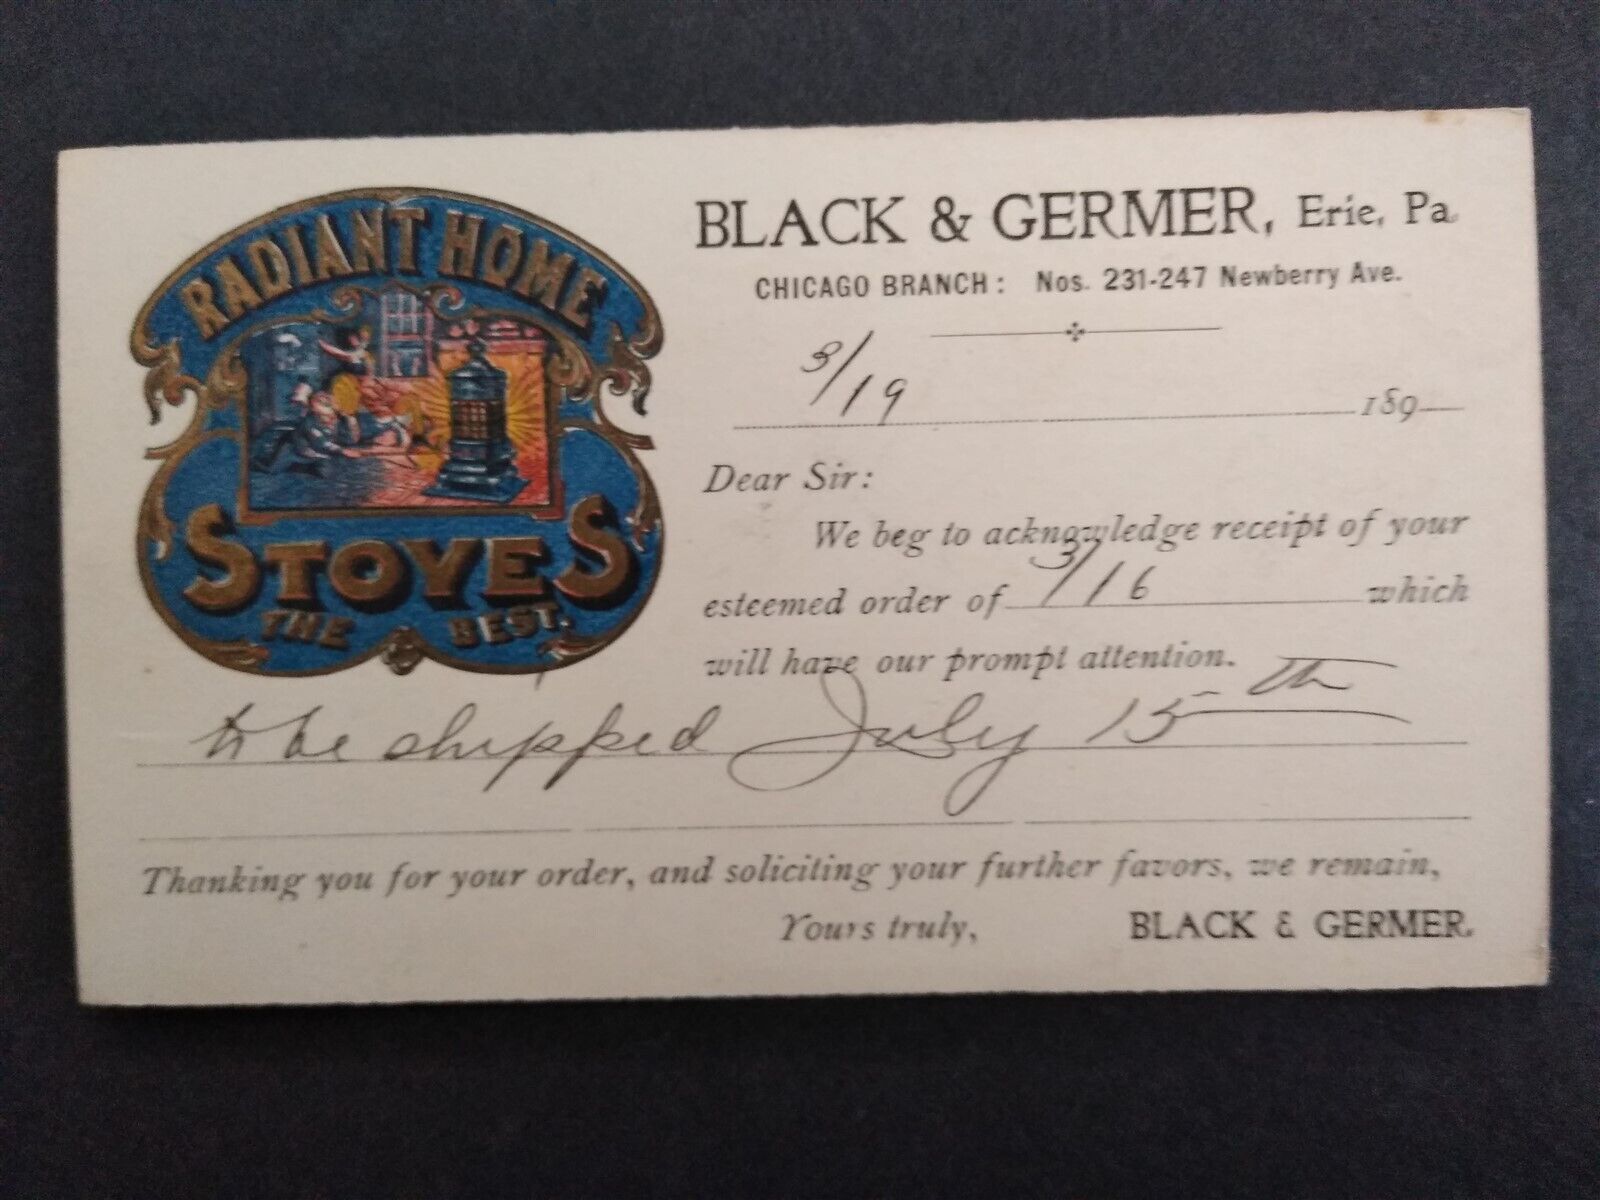 RADIANT HOME
STOVES
THE BEST.
BLACK & GERMER, Erie, Pa.
CHICAGO BRANCH: Nos. 231-247 Newberry Ave.
3/19 189
Dear Sir:
We beg to acknowledge receipt of your
esteemed order of 3/16 which
will have our prompt attention.
to be shipped July 15th
Thanking you for your order, and soliciting your further favors, we remain,
Yours truly, BLACK & GERMER.